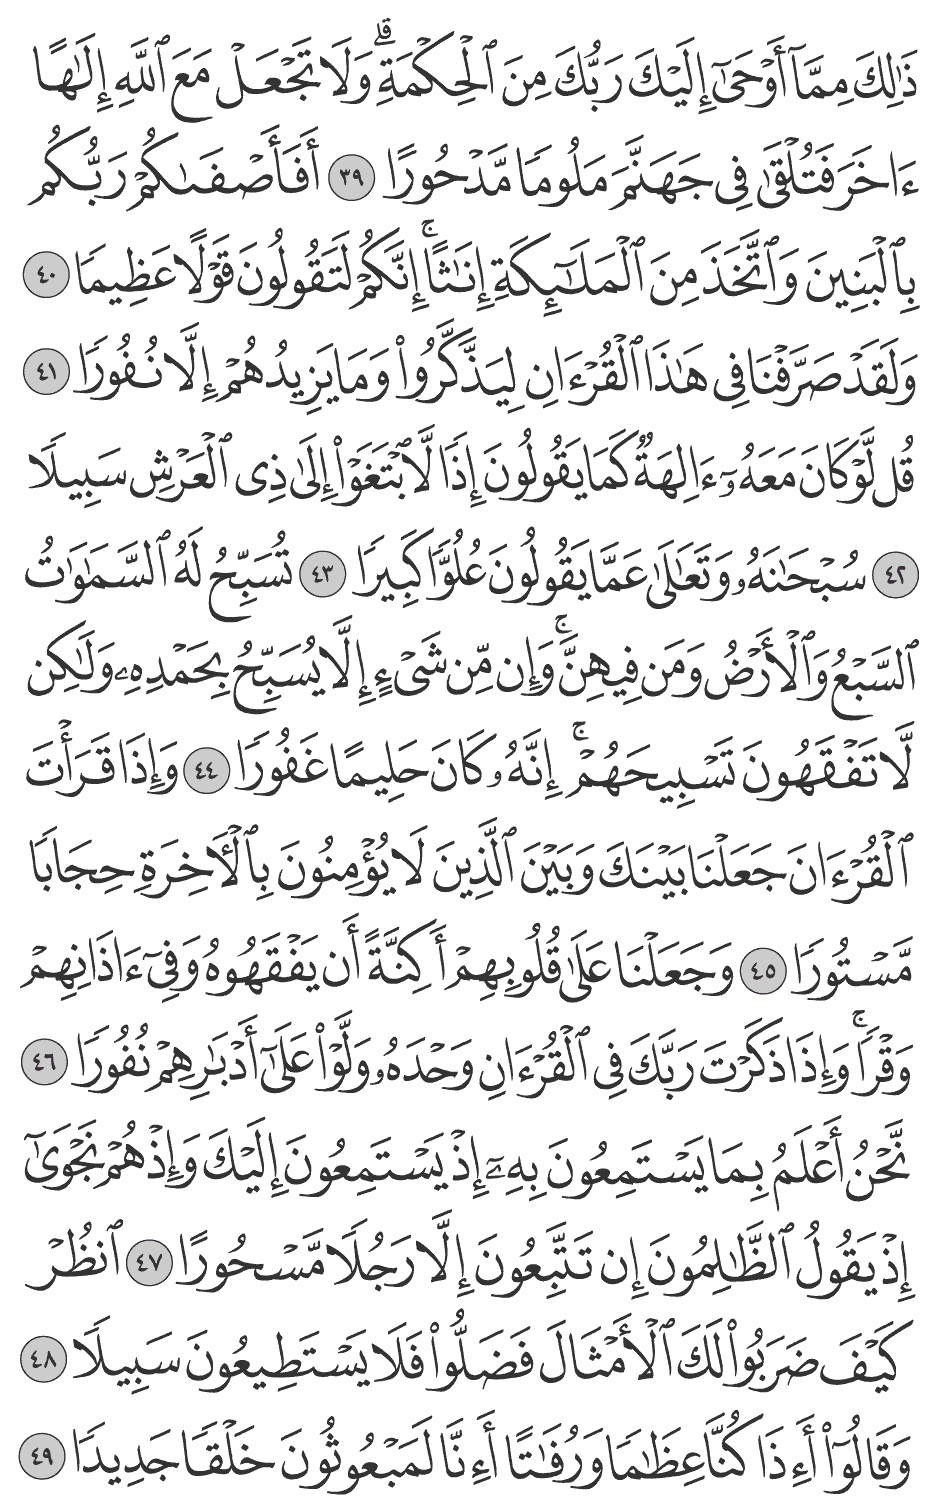 ذَٰلِكَ مِمَّآ أَوْحَىٰٓ إِلَيْكَ رَبُّكَ مِنَ ٱلْحِكْمَةِ ۗ وَلَا تَجْعَلْ مَعَ ٱللَّهِ إِلَٰهًا
ءَاخَرَ فَتُلْقَىٰ فِى جَهَنَّمَ مَلُومًا مَّدْحُورًا ٣٩ أَفَأَصْفَىٰكُمْ رَبُّكُم
بِٱلْبَنِينَ وَٱتَّخَذَ مِنَ ٱلْمَلَٰٓئِكَةِ إِنَٰثًا ۚ إِنَّكُمْ لَتَقُولُونَ قَوْلًا عَظِيمًا ٤٠
وَلَقَدْ صَرَّفْنَا فِى هَٰذَا ٱلْقُرْءَانِ لِيَذَّكَّرُوا۟ وَمَا يَزِيدُهُمْ إِلَّا نُفُورًا ٤١
قُل لَّوْ كَانَ مَعَهُۥٓ ءَالِهَةٌ كَمَا يَقُولُونَ إِذًا لَّٱبْتَغَوْا۟ إِلَىٰ ذِى ٱلْعَرْشِ سَبِيلًا
٤٢ سُبْحَٰنَهُۥ وَتَعَٰلَىٰ عَمَّا يَقُولُونَ عُلُوًّا كَبِيرًا ٤٣ تُسَبِّحُ لَهُ ٱلسَّمَٰوَٰتُ
ٱلسَّبْعُ وَٱلْأَرْضُ وَمَن فِيهِنَّ ۚ وَإِن مِّن شَىْءٍ إِلَّا يُسَبِّحُ بِحَمْدِهِۦ وَلَٰكِن
لَّا تَفْقَهُونَ تَسْبِيحَهُمْ ۗ إِنَّهُۥ كَانَ حَلِيمًا غَفُورًا ٤٤ وَإِذَا قَرَأْتَ
ٱلْقُرْءَانَ جَعَلْنَا بَيْنَكَ وَبَيْنَ ٱلَّذِينَ لَا يُؤْمِنُونَ بِٱلْءَاخِرَةِ حِجَابًا
مَّسْتُورًا ٤٥ وَجَعَلْنَا عَلَىٰ قُلُوبِهِمْ أَكِنَّةً أَن يَفْقَهُوهُ وَفِىٓ ءَاذَانِهِمْ
وَقْرًا ۚ وَإِذَا ذَكَرْتَ رَبَّكَ فِى ٱلْقُرْءَانِ وَحْدَهُۥ وَلَّوْا۟ عَلَىٰٓ أَدْبَٰرِهِمْ نُفُورًا ٤٦
نَّحْنُ أَعْلَمُ بِمَا يَسْتَمِعُونَ بِهِۦٓ إِذْ يَسْتَمِعُونَ إِلَيْكَ وَإِذْ هُمْ نَجْوَىٰٓ
إِذْ يَقُولُ ٱلظَّٰلِمُونَ إِن تَتَّبِعُونَ إِلَّا رَجُلًا مَّسْحُورًا ٤٧ ٱنظُرْ
كَيْفَ ضَرَبُوا۟ لَكَ ٱلْأَمْثَالَ فَضَلُّوا۟ فَلَا يَسْتَطِيعُونَ سَبِيلًا ٤٨
وَقَالُوٓا۟ أَءِذَا كُنَّا عِظَٰمًا وَرُفَٰتًا أَءِنَّا لَمَبْعُوثُونَ خَلْقًا جَدِيدًا ٤٩